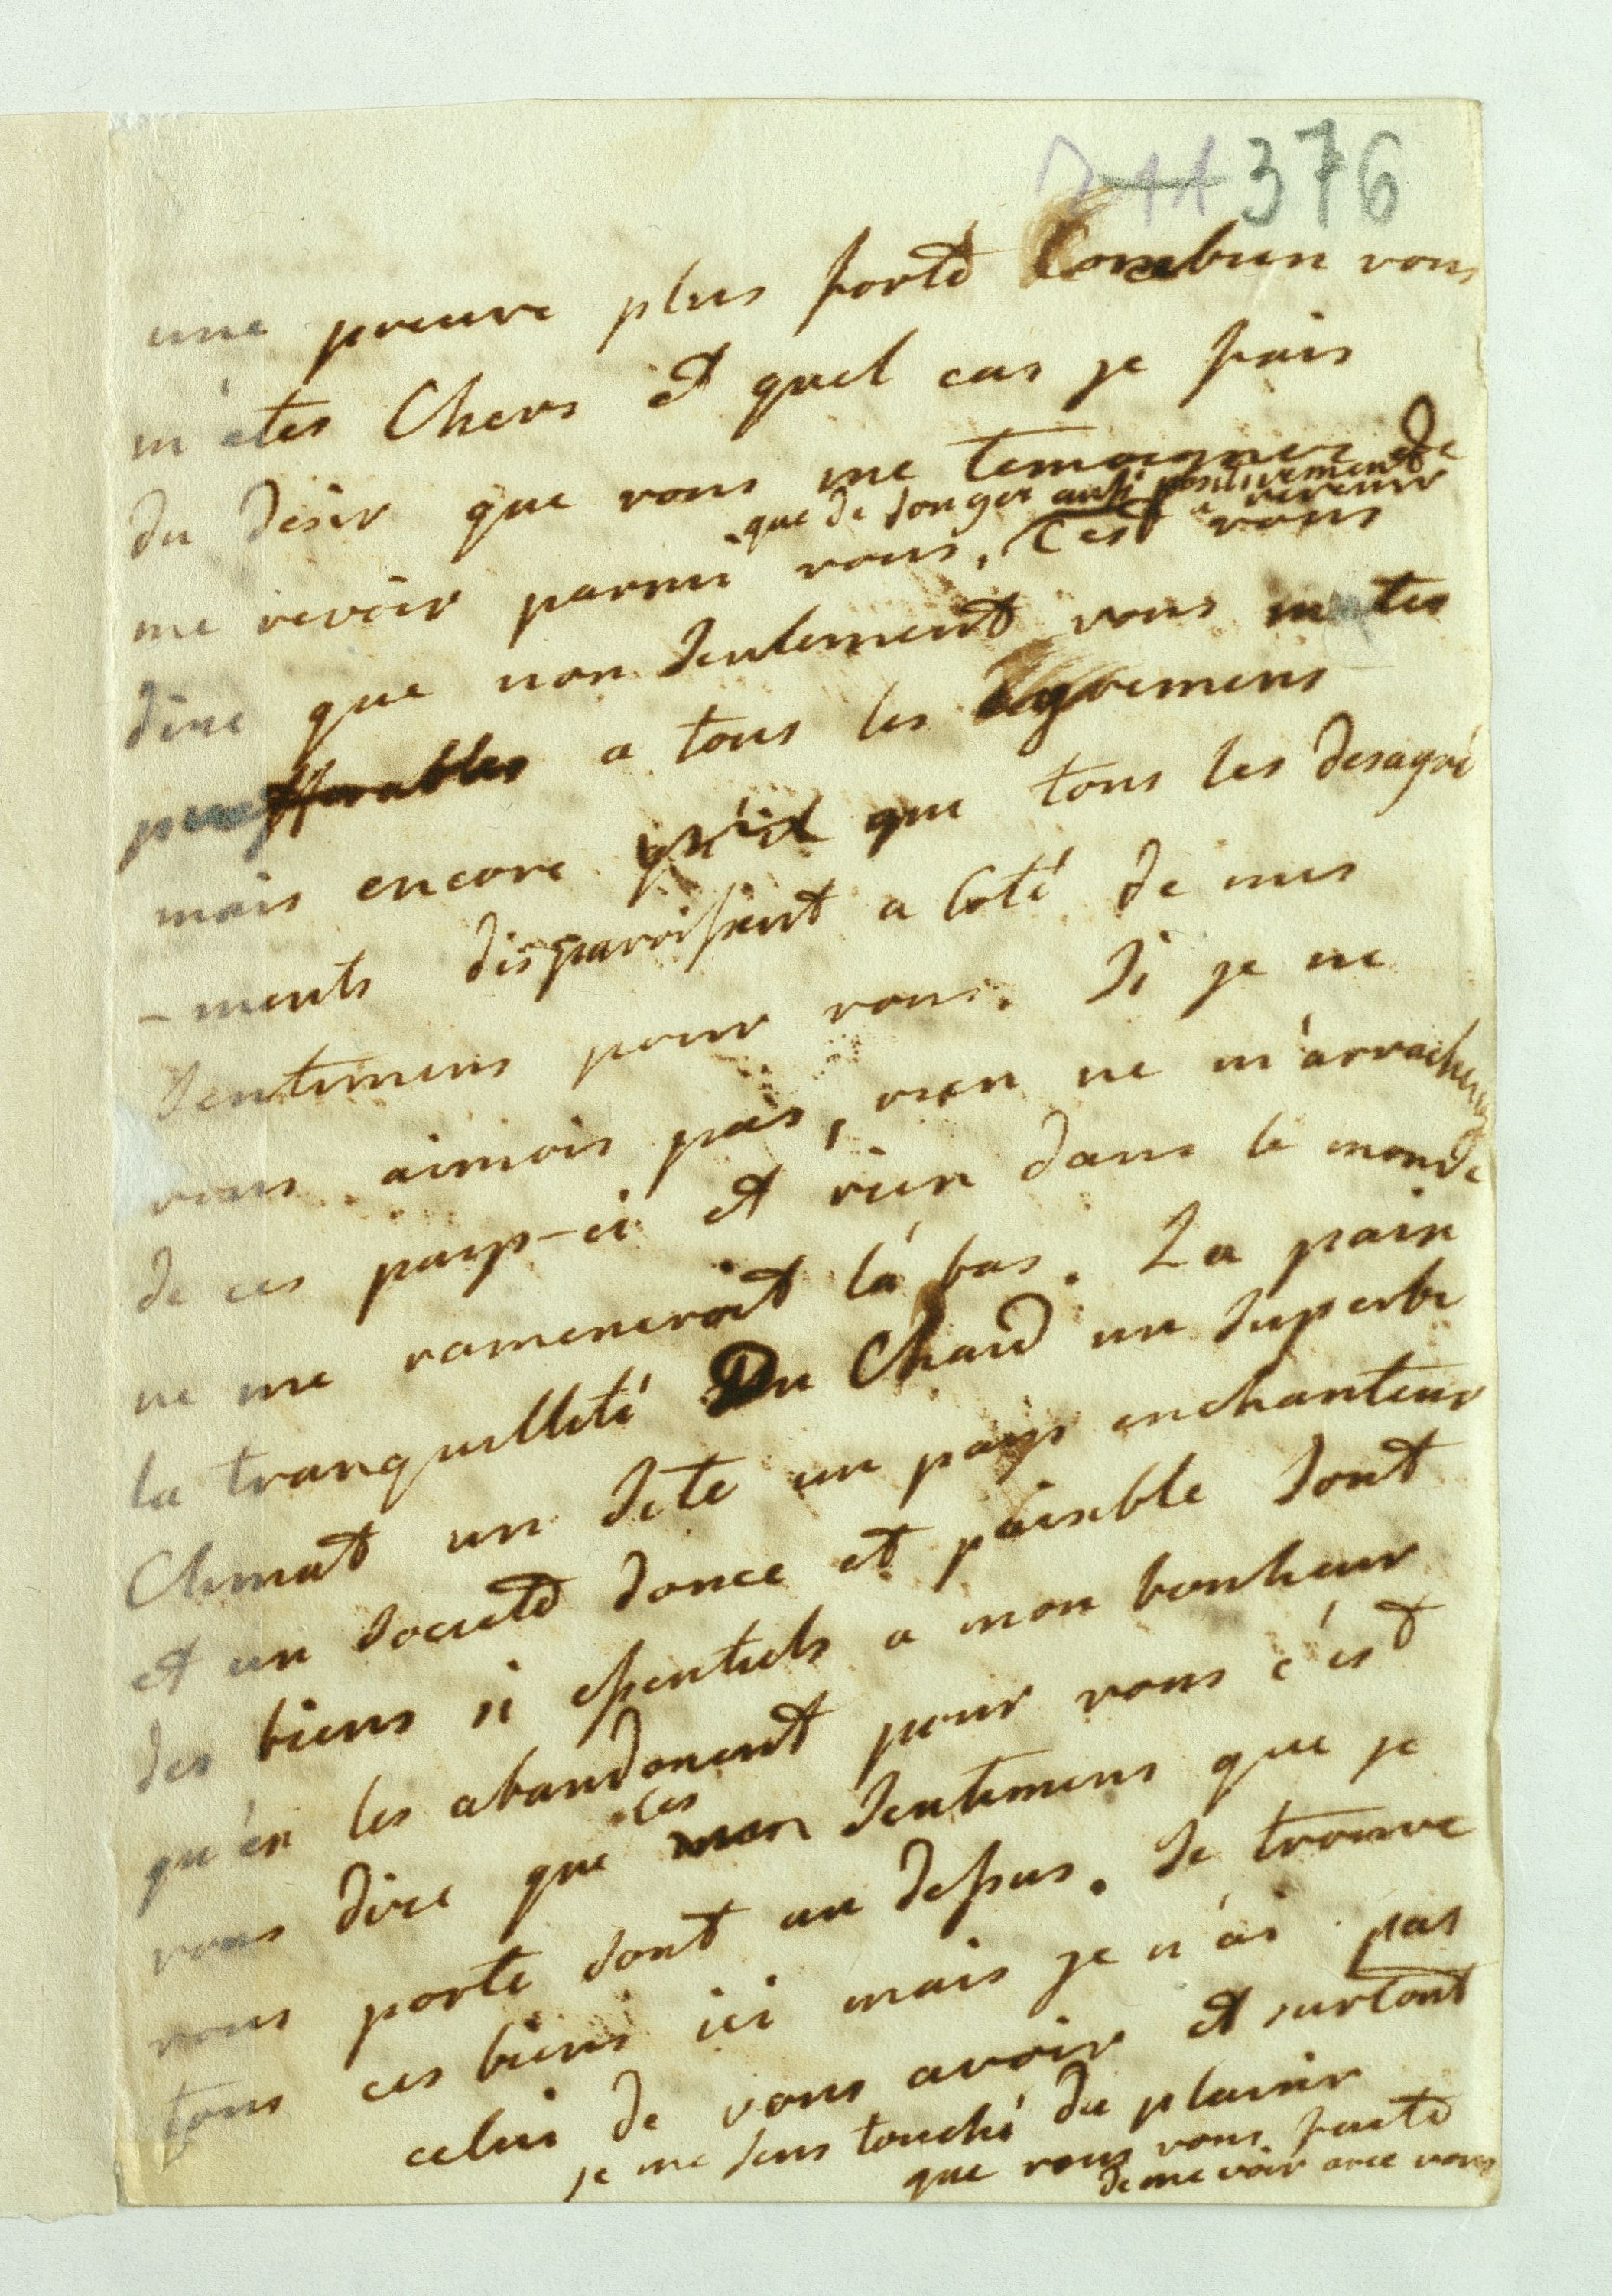 244 376
une preuve plus forte Combien vous
m'etes Chers et quel cas je fais
du desir que vous me temoignez de
que de songer aussi positivement a revenir
me revoir parmi vous. C'est vous
dire que non seulement vous m'etes
prefferables a tous les agremens
mais encore qu'il que tous les desagré
-ments disparoissent a coté de mes
sentimens pour vous. Si je ne
vous aimois pas, rien ne m'arracheroit
de ces pays-ci et rien dans le monde
ne me rameneroit là bas. La paix
la tranquillité Du Chaud un superbe
Climat un site un pays enchanteur
et un societé douce et paisible sont
des biens si essentiels a mon bonheur
qu'en les abandonent pour vous c'est
vous dire que les mon sentimens que je
vous porte sont au dessus. Je trouve
tous ces biens ici mais je n'ai pas
celui de vous avoir et surtout
je me sens touché du plaisir
que vous vous faite
de me voir avec vous